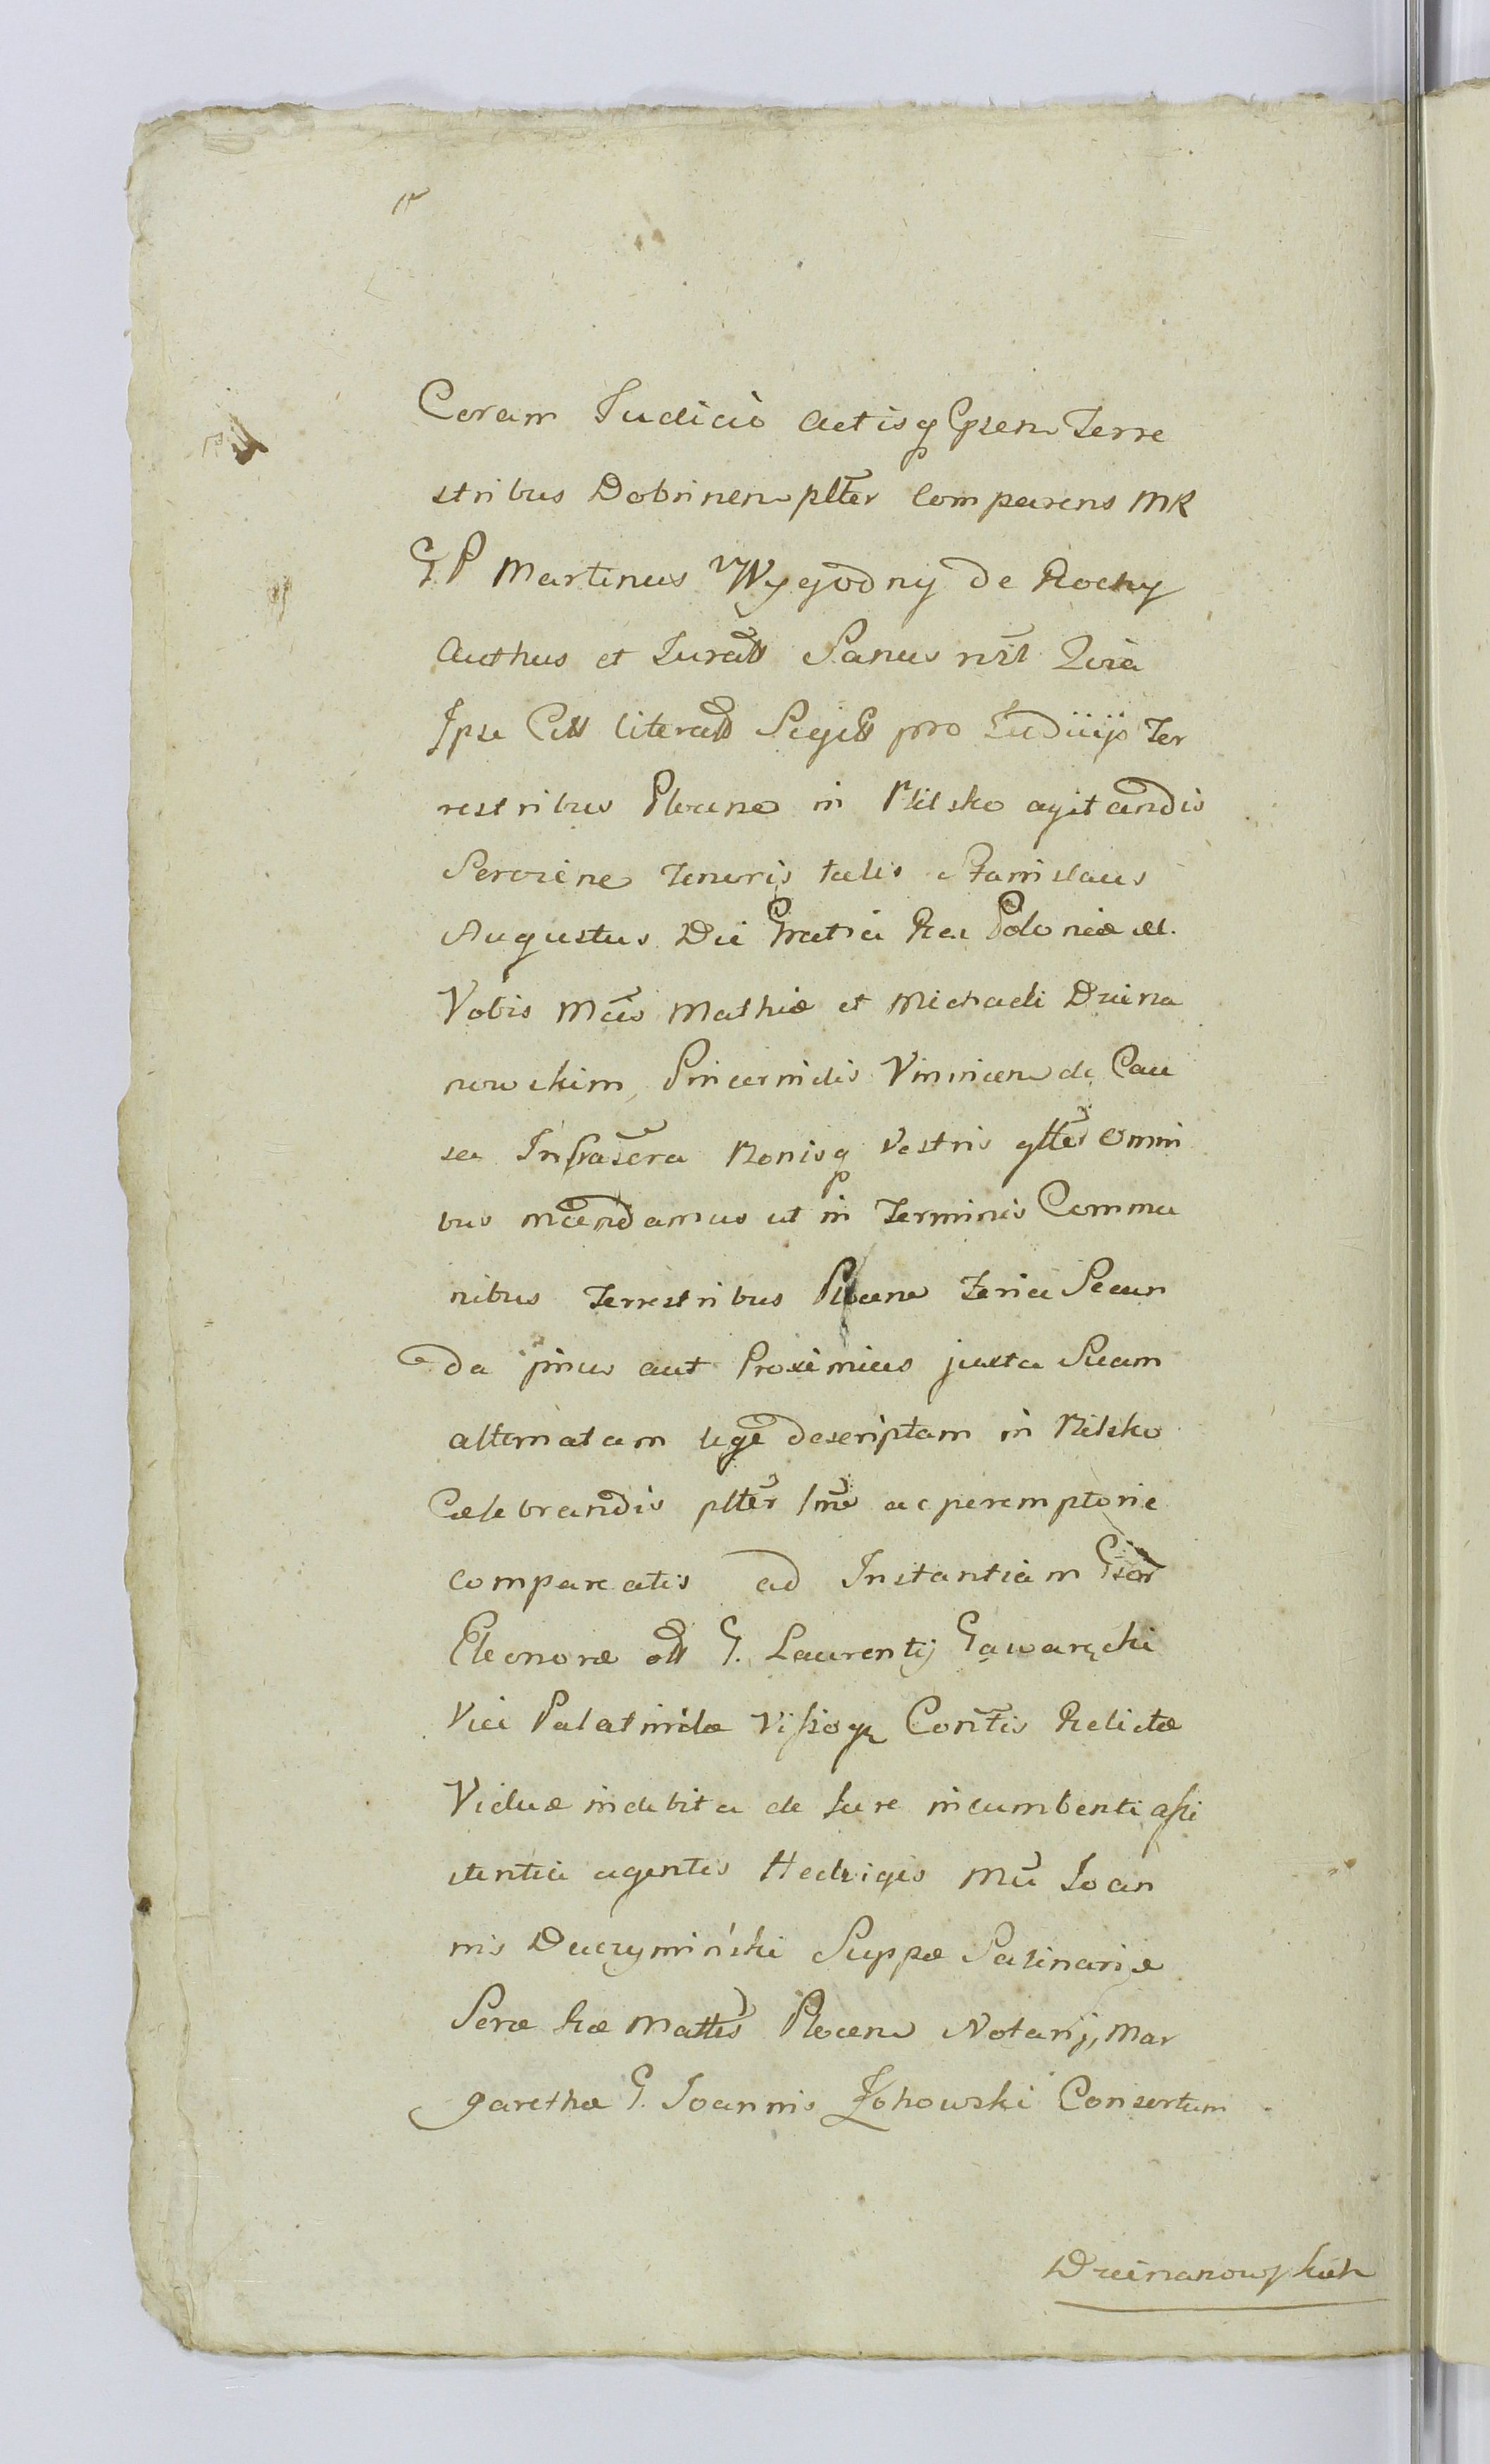 Coram Judicio Actisq Gpsen Terre
stribus Dobrinen pltĕr Comparens MR
G P Martinus Wygodny de Rochy
Authus et Jurałł Sanus nr̃l Qvia
Ipse Citł literałł Sigitł pro Judiiijs Ter
restribus Plocen in Bilsko agitandis
Servine tenoris talis Stanislaus
Augustus Dei Gratia Rex Poloniæ &.
Vobis Mcis Mathiæ et Michaeli Dziena
nowskim, Pincernidis Vinnicen de Cau
sa Infrascra Bonisq vestris gltĕr omni
bus mandamus ut in Terminis Commu
nibus Terrestribus Plocen feria Secun
da pinus aut Proximius juxta Suam
alternatam lege descriptam in Bilsko
Celebrandis pltĕr lme ac peremptorie
compareatis ad Instantiam Gsar
Eleonoræ ołł G. Laurentij Gąwaręcki
Vice Palatinidæ Vissogr Contĭs Relictæ
Viduæ in debita de Jure incumbenti assi
stentia agentis Hedvigis Mci Joan
nis Duczymiński Suppæ Salinariæ
Seræ Ræ Mattis Plocen Notarij, Mar
garethæ G. Joannis Żohowski Consortum
Dzienanowskich